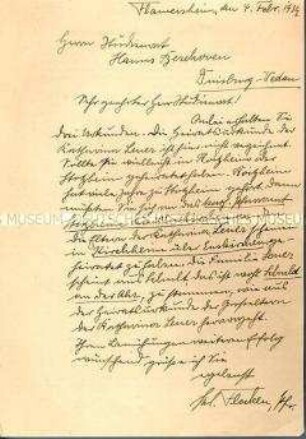 Flamersheim, den 4. Febr. 1936
Herrn Studienrat
Hanns Berchoven
Duisburg-Wedau
Sehr geehrter Herr Studienrat!
Anbei erhalten Sie
drei Urkunden. Die Heiratsurkunde der
Katharina ist hier nicht verzeichnet.
Sollte sie vielleicht in Roitzheim oder
Stotzheim geheiratet haben. Roitzheim
hat viele Jahre zu Stotzheim gehört. Dann
müßten Sie sich an das kath. Pfarramt
Stotzheim
Die Eltern der Katharina scheinen
in Kirchheim über Euskirchen ge-
heiratet zu haben. Die Familie
scheint aus Schuld, das ist wohl Schuld
an der Ahr, zu stammen, wie aus
der Heiratsurkunde der Großeltern
der Katharina hervorgeht.
Ihren Bemühungen weiteren Erfolg
wünschend grüße ich Sie
ergebenst